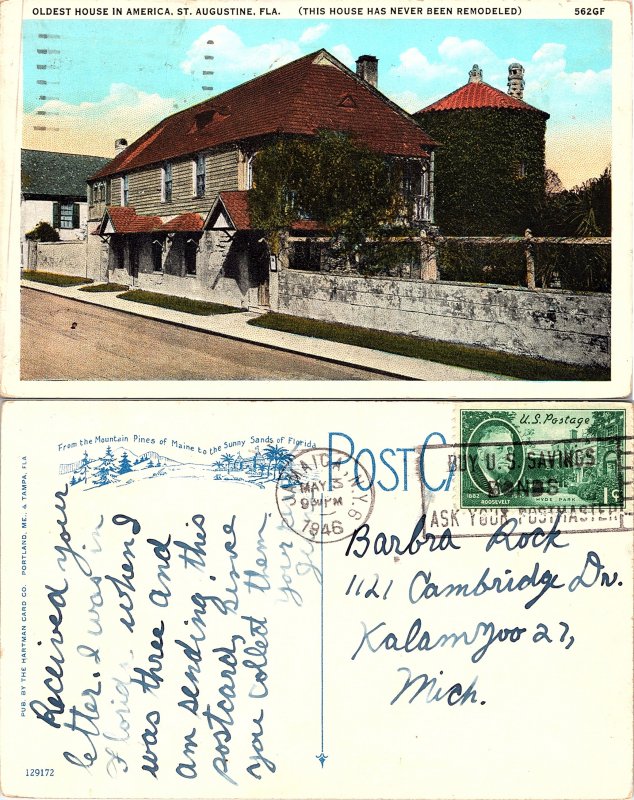 OLDEST HOUSE IN AMERICA, ST. AUGUSTINE, FLA. (THIS HOUSE HAS NEVER BEEN REMODELED) 562GF
From the Mountain Pines of Maine to the Sunny Sands of Florida
POST CA
PUB. BY THE HARTMAN CARD CO. PORTLAND, ME. & TAMPA, FLA
129172
JAMAICA, N.Y. 6
MAY 3
9 PM
1946
BUY U.S. SAVINGS
BONDS
ASK YOUR POSTMASTER
U.S. Postage
1882
ROOSEVELT
HYDE PARK
1¢
Received your
letter. I was in
Florida when I
was three and
am sending this
postcard, sinse
you collect them.
Your
Barbra Rock
1121 Cambridge Dr.
Kalamzoo 27,
Mich.